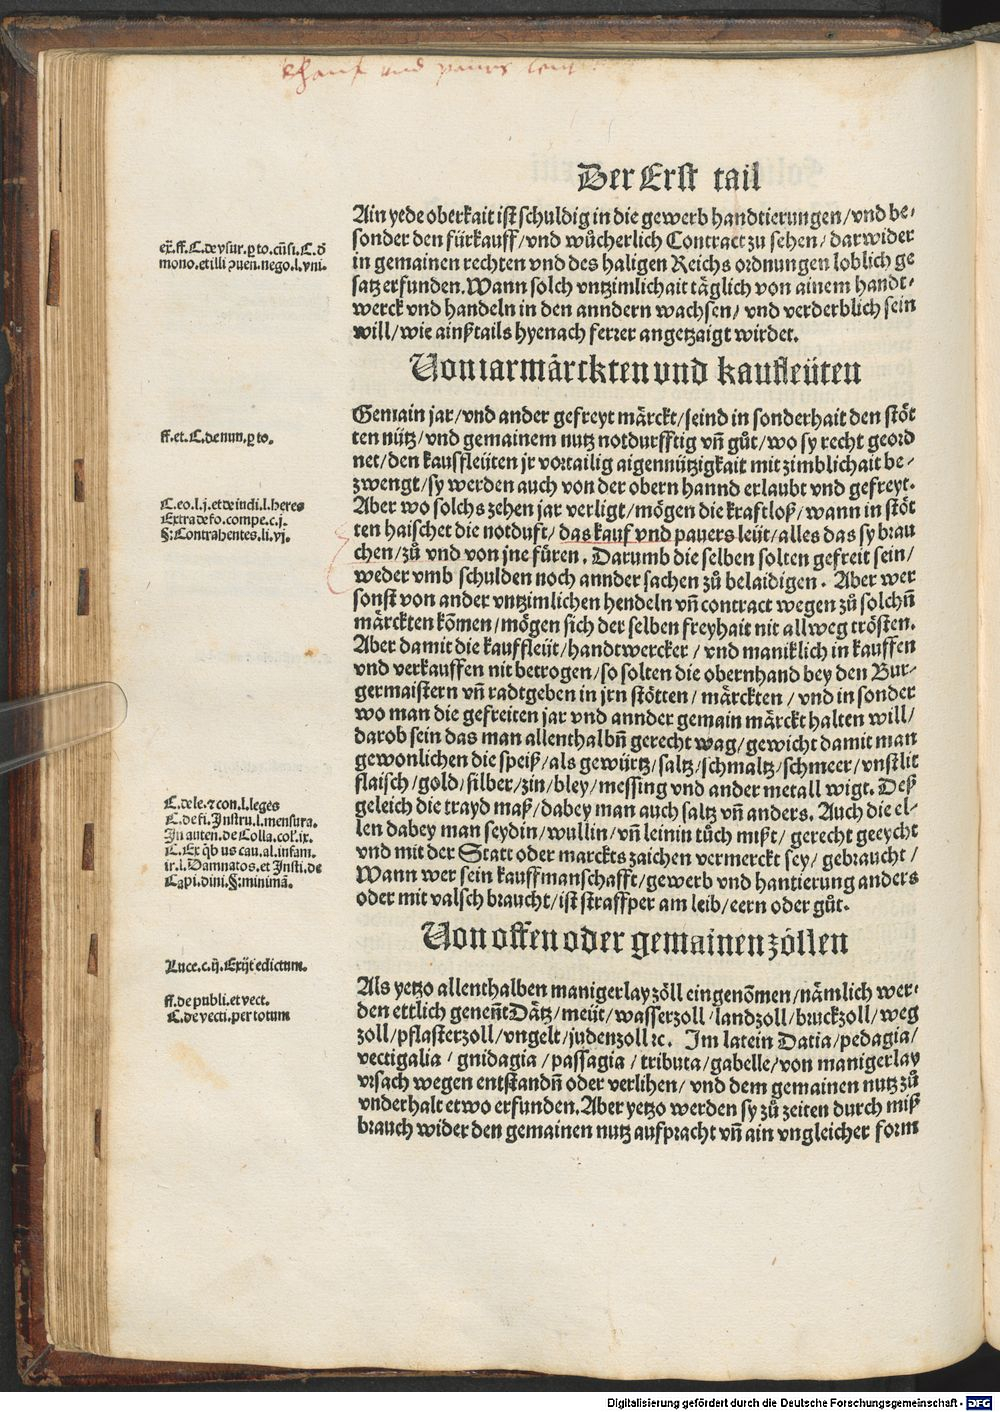 Der Erst tail
Ain yede oberkait ist schuldig in die gewerb handtierungen/vnd be-
sonder den fürkauff/vnd wůcherlich Contract zu sehen/darwider
in gemainen rechten vnd des haligen Reichs ordnungen loblich ge
satz erfunden. Wann solch vntzimlichait täglich von ainem handt-
werck vnd handeln in den anndern wachsen/vnd verderblich sein
will/wie ainßtails hyenach ferrer angetzaigt wirdet.
eṝ.ff.C.de vsur.ꝑ to.cūsi.C.ð
mono.et illi ꝯuen.nego.l.vni.
Von iarmärckten vnd kaufleüten
Gemain jar/vnd ander gefreyt märckt/seind in sonderhait den stöt
ten nütz/vnd gemainem nutz notdurfftig vn̄ gůt/wo sy recht geord
net/den kauffleüten jr vortailig aigennützigkait mit zimblichait be-
zwengt/sy werden auch von der obern hannd erlaubt vnd gefreyt.
Aber wo solchs zehen jar verligt/mögen die kraftloß/wann in stöt
ten haischet die notduft/das kauf vnd pauers leüt/alles das sy brau
chen/zů vnd von jne füren. Darumb die selben solten gefreit sein/
weder vmb schulden noch annder sachen zů belaidigen. Aber wer
sonst von ander vntzimlichen hendeln vn̄ contract wegen zů solchn̄
märckten kōmen/mögen sich der selben freyhait nit allweg trösten.
Aber damit die kauffleüt/handtwercker/vnd maniklich in kauffen
vnd verkauffen nit betrogen/so solten die obernhand bey den Bur-
germaistern vn̄ radtgeben in jrn stötten/märckten/vnd in sonder
wo man die gefreiten jar vnd annder gemain märckt halten will/
darob sein das man allenthalbn̄ gerecht wag/gewicht damit man
gewonlichen die speiß/als gewürtz/saltz/schmaltz/schmeer/vnstlit
flaisch/gold/silber/zin/bley/messing vnd ander metall wigt. Deß
geleich die trayd maß/dabey man auch saltz vn̄ anders. Auch die el-
len dabey man seydin/wullin/vn̄ leinin tůch mißt/gerecht geeycht
vnd mit der Statt oder marckts zaichen vermerckt sey/gebraucht/
Wann wer sein kauffmanschafft/gewerb vnd hantierung anders
oder mit valsch braucht/ist straffper am leib/eern oder gůt.
ff.et.C.de nun.ꝑ to.
C.eo.l.j.et de indi.l.heres
Extra de fo.compe.c.j.
§:Contrahentes.li.vj.
C.de le.⁊ con.l.leges
C.de fi.Instru.l.mensura.
In auten.de Colla.col'.ix.
C.Ex q̄b us cau.al.infam.
ir.l.Damnatos.et Insti.de
Capi.dini.§:minimā.
Von offen oder gemainen zöllen
Als yetzo allenthalben manigerlay zöll eingenōmen/nämlich wer-
den ettlich genen̄t Dätz/meüt/wasserzoll/landzoll/bruckzoll/weg
zoll/pflasterzoll/vngelt/judenzoll ꝛc. Im latein Datia/pedagia/
vectigalia/gnidagia/passagia/tributa/gabelle/von manigerlay
vrsach wegen entstandn̄ oder verlihen/vnd dem gemainen nutz zů
vnderhalt etwo erfunden. Aber yetzo werden sy zů zeiten durch miß
brauch wider den gemainen nutz aufpracht vn̄ ain vngleicher form
Luce.c.ij.Exijt edictum.
ff.de publi.et vect.
C.de vecti.per totum
Digitalisierung gefördert durch die Deutsche Forschungsgemeinschaft - DFG